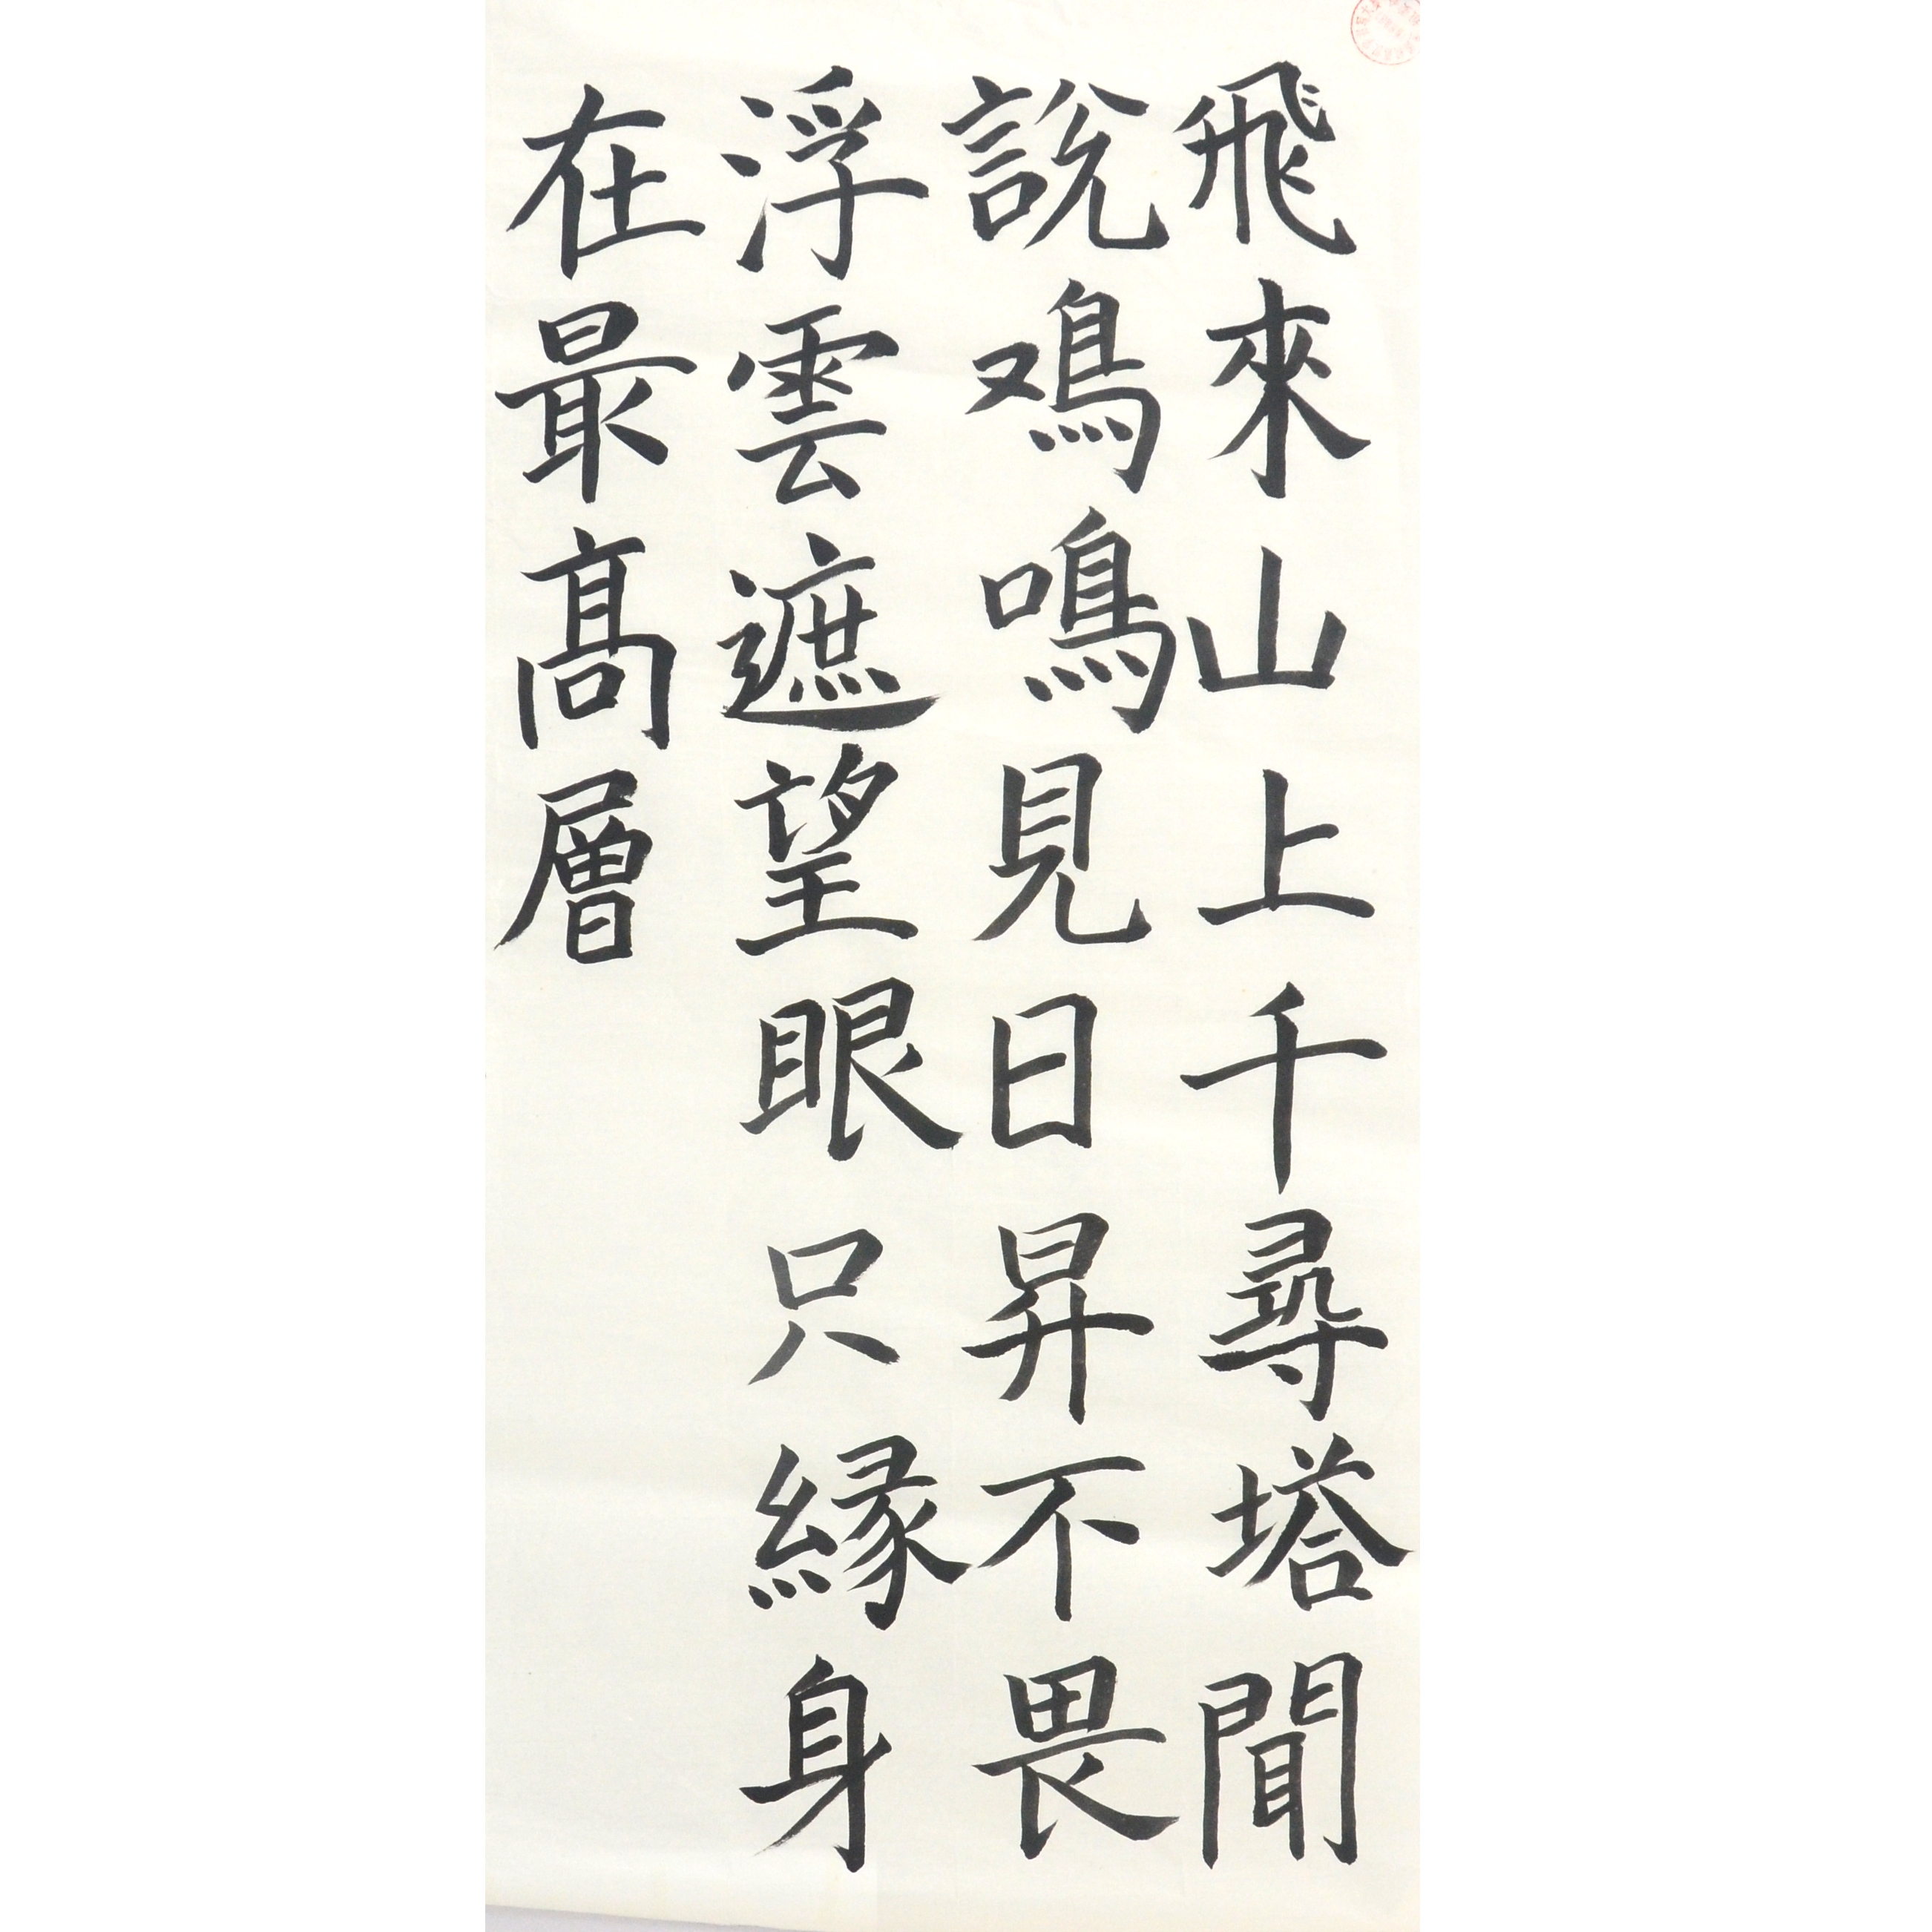 飛來山上千尋塔聞
説鳮鳴見日昇不畏
浮雲遮望眼只縁身
在最髙層